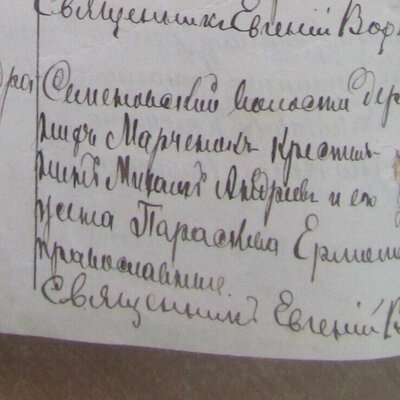 Священникъ Евгеній Вор
Семеновской волости дер
Марченокъ крестья
нинъ Михаилъ Андреевъ и его
жена Параскева Ермола
православные.
Священникъ Евгеній В